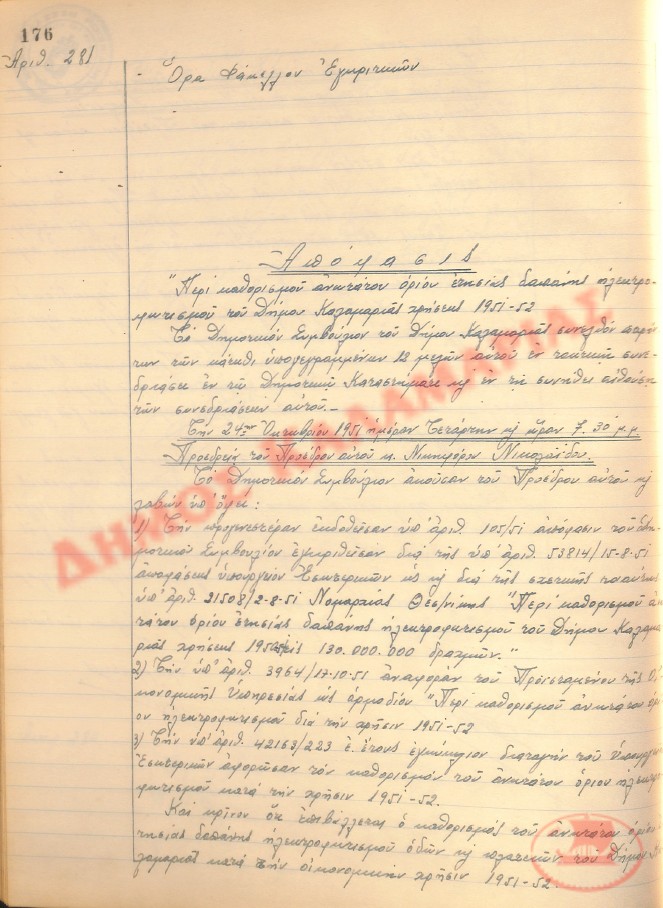 176
Ἀριθ. 281
Ὅρα Φάκελλον Ἐγκριτικῶν
Ἀπόφασις
"Περί καθορισμοῦ ἀνωτάτου ὁρίου ἐτησίας δαπάνης ἠλεκτρο-
φωτισμοῦ τοῦ Δήμου Καλαμαριᾶς χρήσεως 1951-52
Τό Δημοτικόν Συμβούλιον τοῦ Δήμου Καλαμαριᾶς συνελθόν παρόν-
των τῶν κάτωθι ὑπογεγραμμένων 12 μελῶν αὐτοῦ ἐν τακτικῇ συνε-
δριάσει ἐν τῷ Δημοτικῷ Καταστήματι κ ἐν τῇ συνήθει αἰθούσῃ
τῶν συνεδριάσεων αὐτοῦ.-
Τήν 24ην Ὀκτωβρίου 1951 ἡμέραν Τετάρτην κ ὥραν 7.30 μ.μ
Προεδρίᾳ τοῦ Προέδρου αὐτοῦ κ. Νικηφόρου Νικολαΐδου.
Τό Δημοτικόν Συμβούλιον ἀκοῦσαν τοῦ Προέδρου αὐτοῦ κ
λαβών ὑπ' ὄψει:
1) Τήν προγενεστέραν ἐκδοθεῖσαν ὑπ' ἀριθ. 105/51 ἀπόφασιν τοῦ Δη-
μοτικοῦ Συμβουλίου ἐγκριθεῖσαν διά τῆς ὑπ' ἀριθ. 53814/15-8-51
ἀποφάσεως ὑπουργείου Ἐσωτερικῶν ὡς κ διά τῆς σχετικῆς τοιαύτης
ὑπ' ἀριθ. 21508/2-8-51 Νομαρχίας Θεσ/νίκης "Περί καθορισμοῦ ἀνω-
τάτου ὁρίου ἐτησίας δαπάνης ἠλεκτροφωτισμοῦ τοῦ Δήμου Καλαμα-
ριᾶς χρήσεως εἰς 130.000.000 δραχμῶν."
2) Τήν ὑπ' ἀριθ. 3964/17-10-51 ἀναφοράν τοῦ Προϊσταμένου τῆς Οἰ-
κονομικῆς Ὑπηρεσίας ὡς ἁρμοδίου "Περί καθορισμοῦ ἀνωτάτου ὁρί-
ου ἠλεκτροφωτισμοῦ διά τήν χρῆσιν 1951-52
3) Τήν ὑπ' ἀριθ. 42163/223 ἐ. ἔτους ἐγκύκλιον διαταγήν τοῦ Ὑπουργείου
Ἐσωτερικῶν ἀφορῶσαν τόν καθορισμόν τοῦ ἀνωτάτου ὁρίου ἠλεκτρο-
φωτισμοῦ κατά τήν χρῆσιν 1951-52.
Καί κρῖνον ὅτι ἐπιβάλλεται ὁ καθορισμός τοῦ ἀνωτάτου ὁρίου ἐ-
τησίας δαπάνης ἠλεκτροφωτισμοῦ ὁδῶν κ πλατειῶν τοῦ Δήμου Κα-
λαμαριᾶς κατά τήν οἰκονομικήν χρῆσιν 1951-52.
ΔΗΜΟΣ ΚΑΛΑΜΑΡΙΑΣ